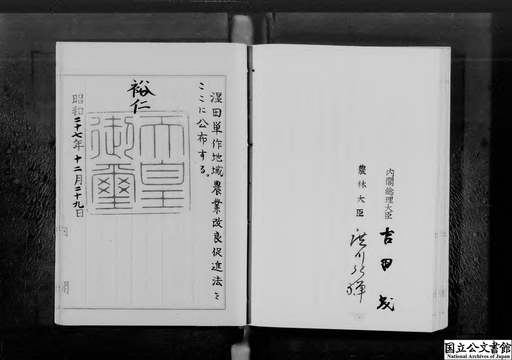 湿田単作地域農業改良促進法を
ここに公布する。
裕仁
天皇
御璽
昭和二十七年十二月二十九日
内閣総理大臣
吉田茂
農林大臣
国立公文書館
National Archives of Japan